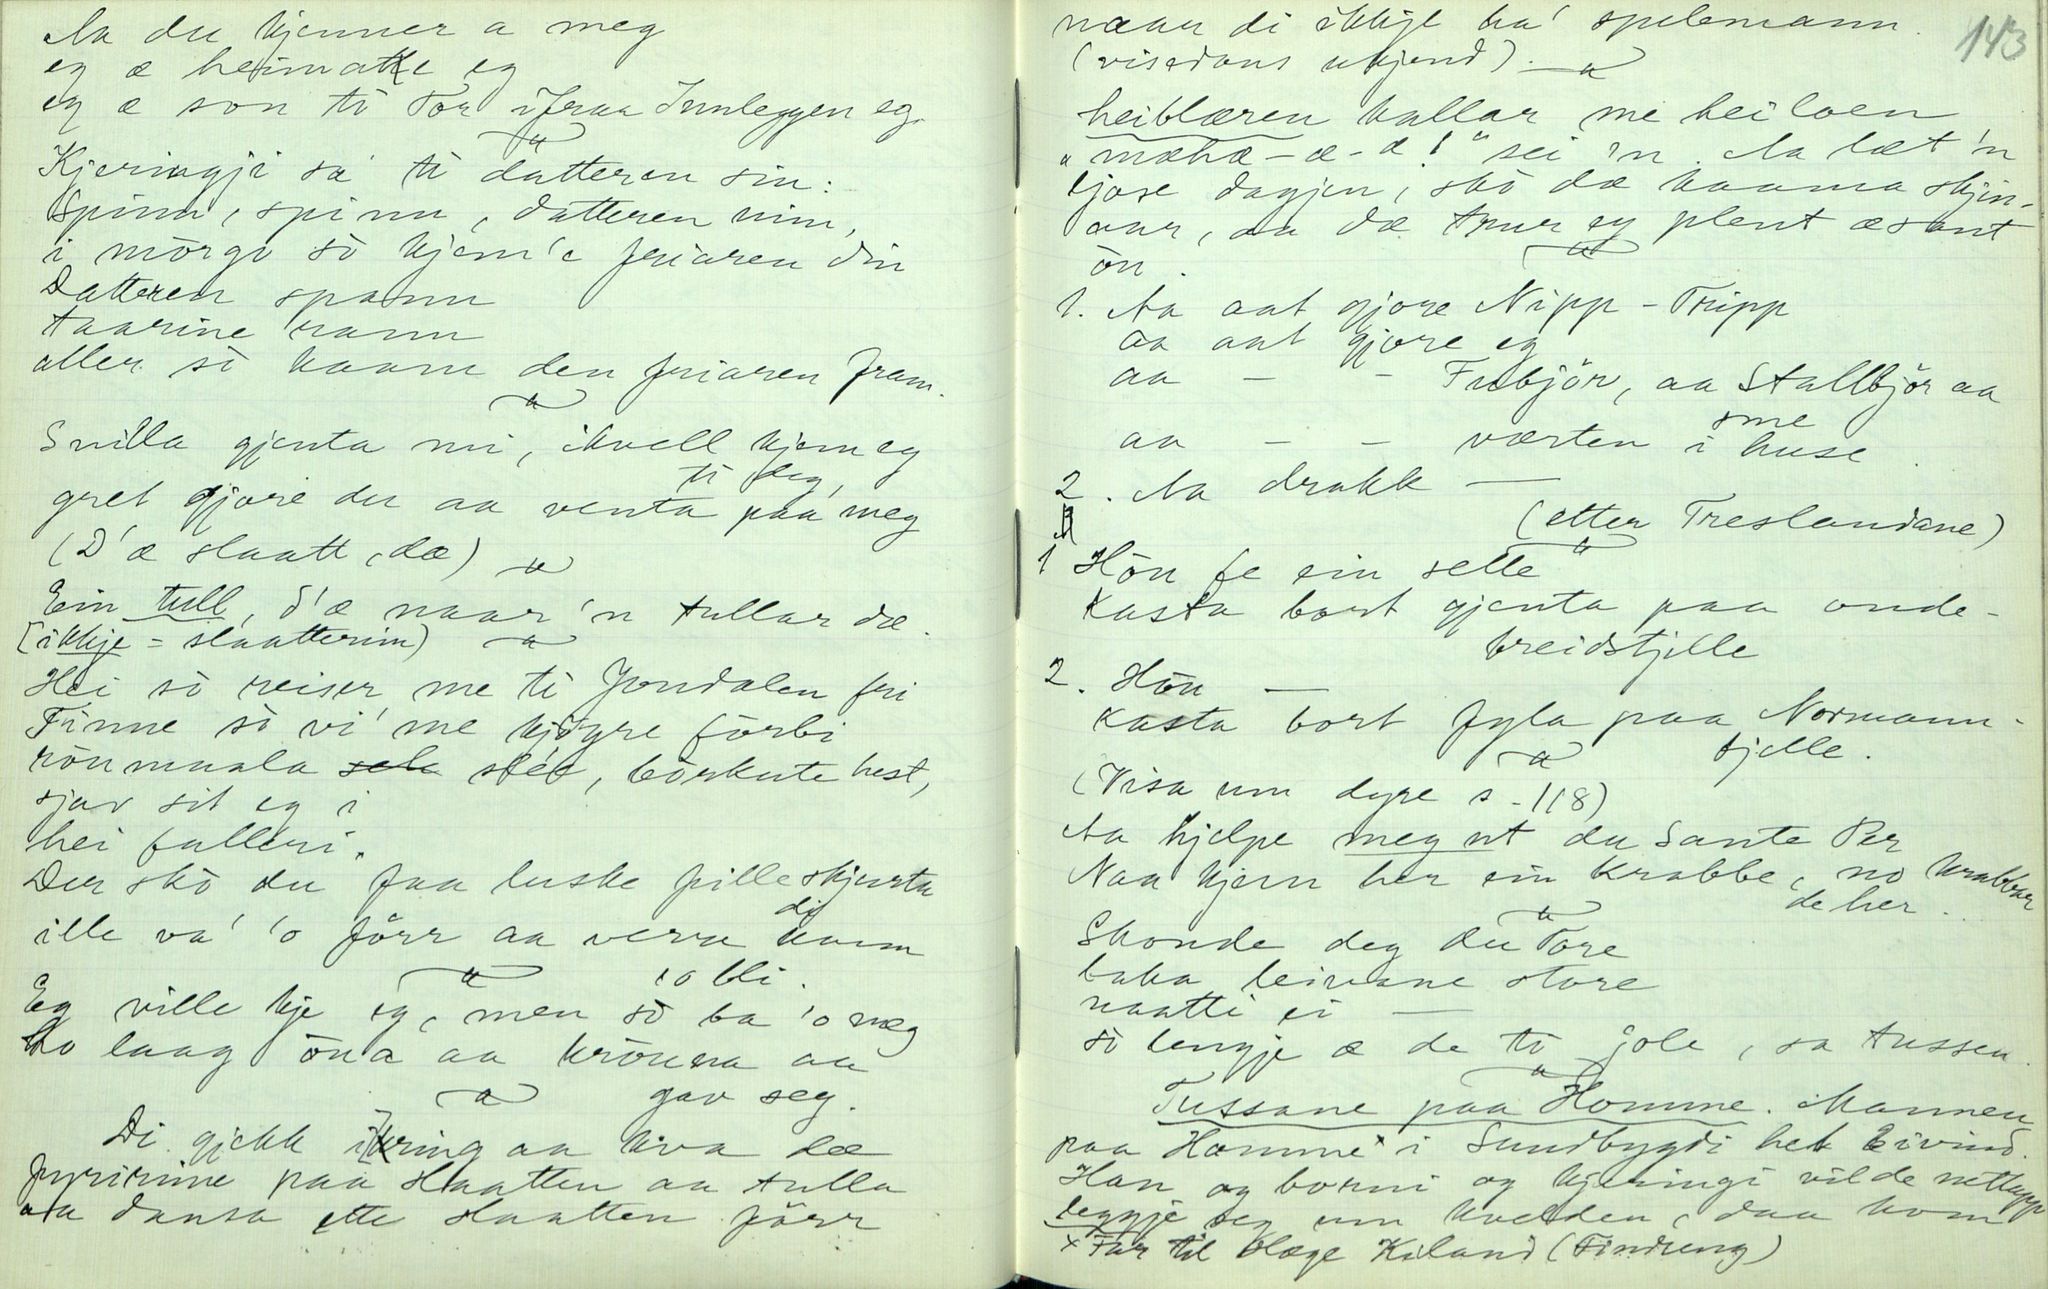 Aa du kjenner a meg
eg æ heimatte eg
eg æ son ti Tor ifraa Innleggen eg.
Kjeringji sa' ti datteren sin:
Spinn, spinn, datteren min,
i mörgo sö kjem'e friaren din
Datteren spann
taarine rann
aller sö kaam den friaren fram.
Snilla gjenta mi, ikvell kjem eg
ti deg,
gret gjore du aa venta paa meg
(D'æ slaatt, dæ)
Ein tull, d'æ naar'n tullar dæ.
(ikkje = slaatterim)
Hei sö reiser me ti Jondalen fri
Finne sö vi' me kjöyre förbi
rönmaala sele, börkute hest,
sjav sit eg i
hei falleri.
Der skö du faa luske fille skjurta
di
ille va' 'o förr aa verra kann
'o bli.
Eg ville kje eg, men sö ba 'o meg
ho laag öna aa krönna aa
gav seg.
Di gjekk ikring aa kva dæ
fyririme paa slaatten aa tulla
aa dansa ette slaatten förr
143
naar di ikkje ha' spelemann.
(visedans ukjend).
heiblæren kallar me heiloen
"mæhæ-æ-æ!" sei 'n. Aa læt 'n
ljose dagjen, skö dæ kaama skjin-
aar, aa dæ trur eg plent æ sant
ön.
1. Aa aat gjore Nipp-Tripp
aa aat gjore eg
aa - - Fubjör, aa Stallbjör aa
aa - - værten i sme huse.
2. Aa drakk —
(etter Treslandane)
1 Hön fe ein selle
Kasta bort gjenta paa onde-
breidstjille
2. Hön —
Kasta bort fyla paa Normann-
fjelle.
(Visa um dyre s. 118)
Aa hjelpe meg ut du Sante Per
Naa kjem her ein Krabbe, no krabbar
de her.
Skonde deg du Tore
baka leivane store
naatti ei —
sö lengje æ de ti jole, sa tussen.
Tussane paa Homme. Mannen
paa Homme x i Sundbygdi het Eivind.
Han og borni og kjeringi vilde nettupp
leggje seg um kvelden, daa kom
x Far til Hæge Kiland (Findeung)